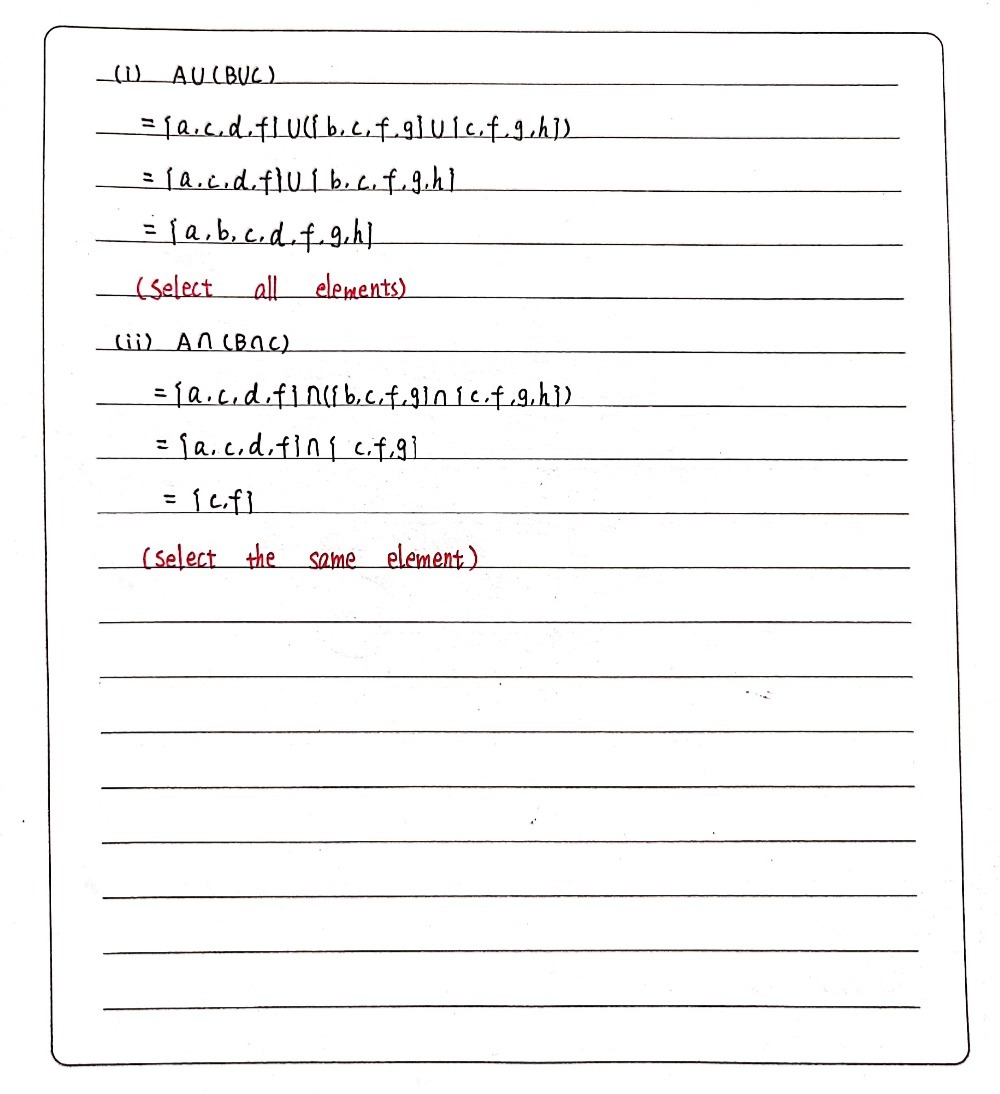 (i) A∪(B∪C)
= {a,c,d,f}∪({b,c,f,g}∪{c,f,g,h})
= {a,c,d,f}∪{b,c,f,g,h}
= {a,b,c,d,f,g,h}
(Select all elements)
(ii) A∩(B∩C)
= {a,c,d,f}∩({b,c,f,g}∩{c,f,g,h})
= {a,c,d,f}∩{c,f,g}
= {c,f}
(Select the same element)